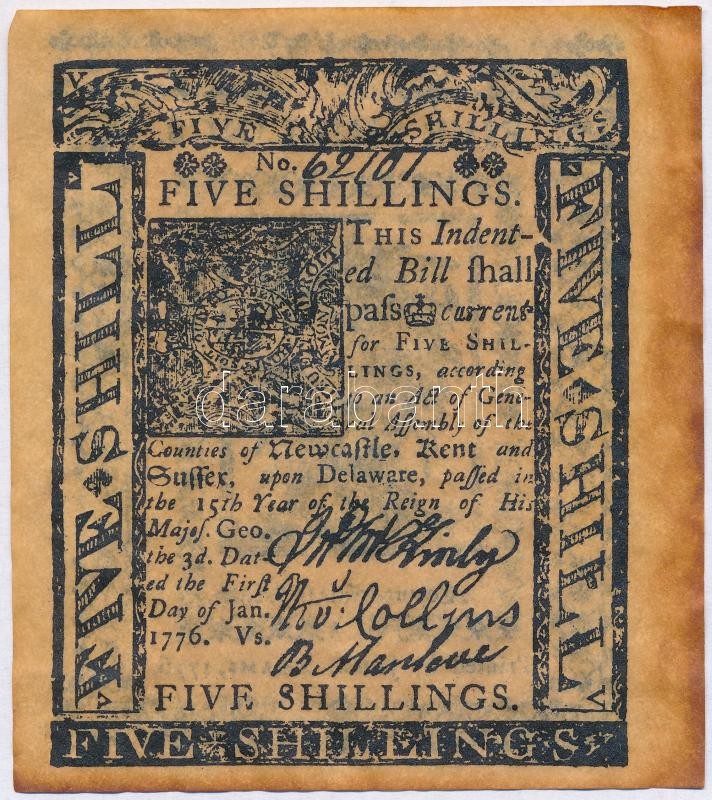 V
FIVE SHILLINGS
No. 62101
FIVE SHILLINGS.
FIVE SHILL
V
V
THIS Indent-
ed Bill ſhall
paſs current
for FIVE SHIL-
LINGS, according
to an Act of Gene-
ral Aſſembly of the
Counties of Newcaſtle, Kent and
Suſſex, upon Delaware, paſſed in
the 15th Year of the Reign of His
Majeſ. Geo.
the 3d. Dat-
ed the Firſt
Day of Jan.
1776. Vs.
Jn McKinly
Thos: Collins
B Manlove
FIVE SHILLINGS.
V
FIVE SHILL
V
FIVE SHILLINGS
darabanth